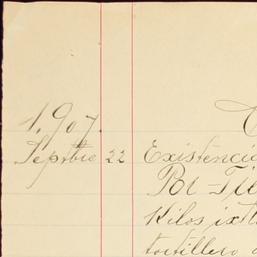 1,907.
Septbre 22 Existencia
Kilos ixtl
tortillero